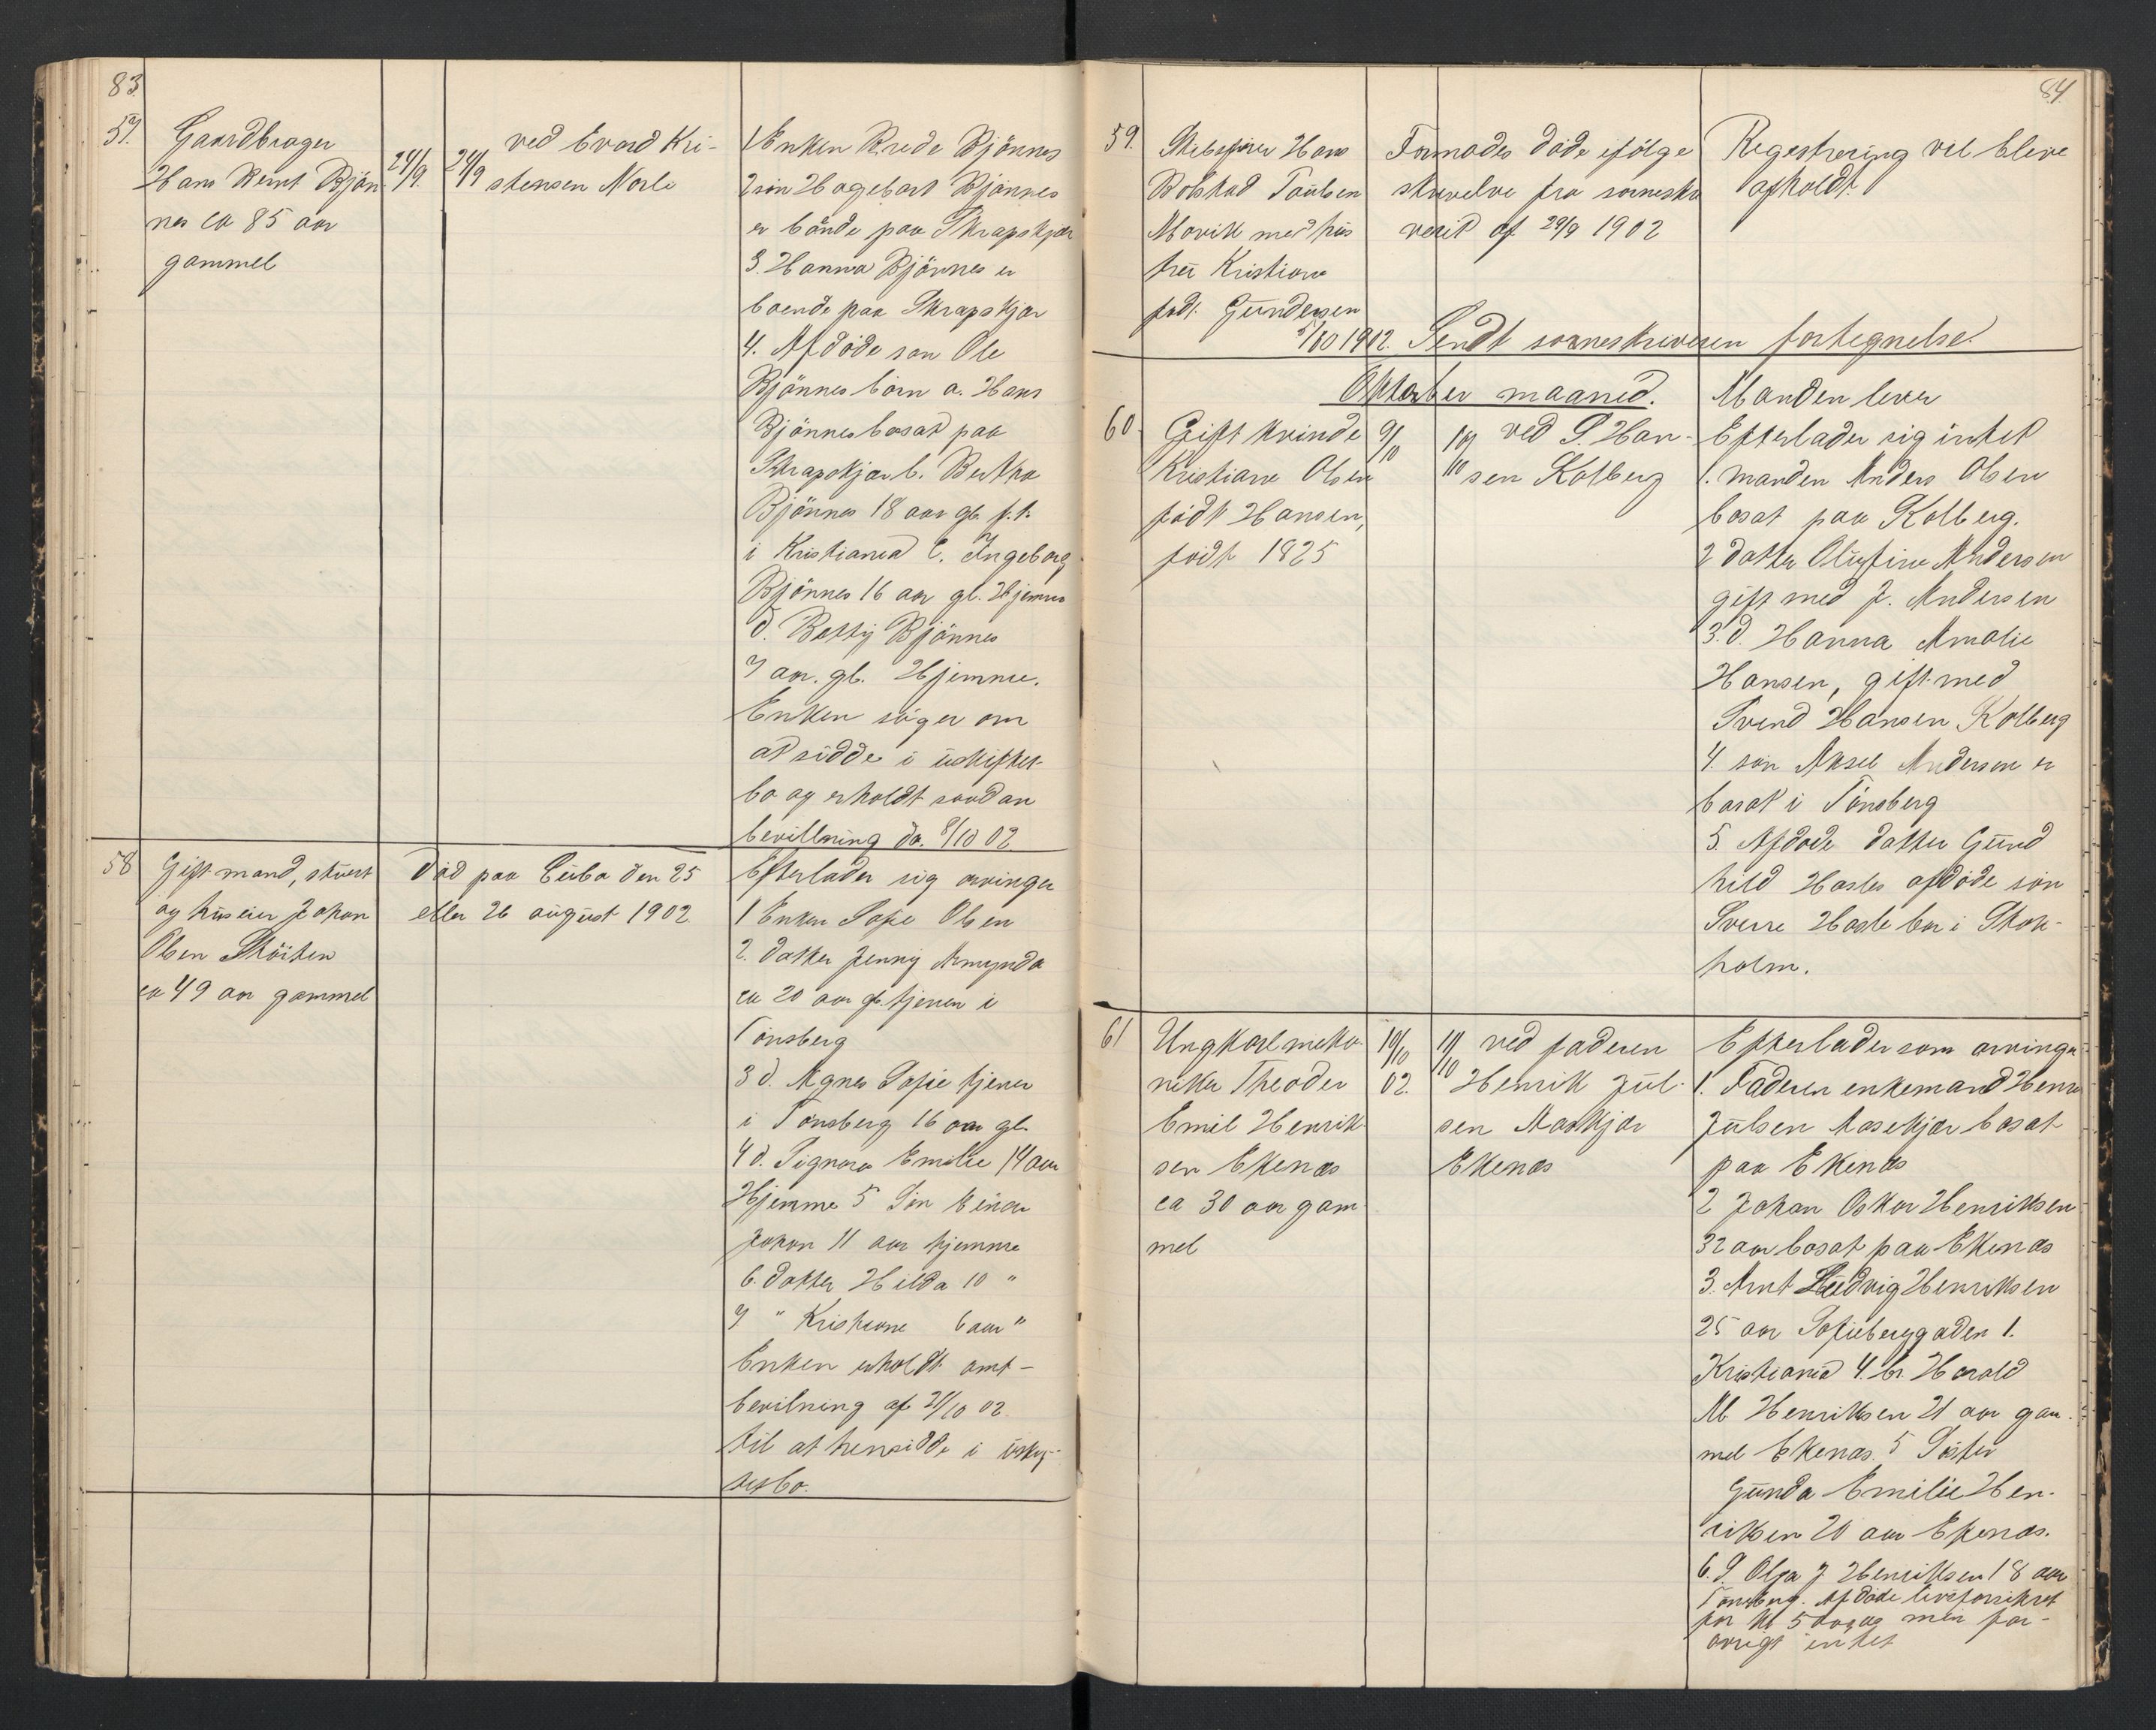 83.
57. Gaardbruger
Hans Bernt Bjön
nes ca 85 aar
gammel
24/9.
24/9
ved Evard Kri-
stensen Narle
1 Enken Brede Bjönnes
2 sön Hagebart Bjönnes
er bönde paa Skrapskjær
3. Hanna Bjönnes er
boende paa Skrapskjær
4. Afdöde sön Ole
Bjönnes börn a. Hans
Bjönnes bosat paa
Skrapskjær b. Bertha
Bjönnes 18 aar gl. f.t.
i Kristiania c. Ingeborg
Bjönnes 16 aar gl. Hjemme
d. Betty Bjönnes
7 aar. gl. Hjemme.
Enken söger om
at sidde i uskiftet
bo og erholdt saadan
bevillning da. 8/10 02
58 Gift mand, stuert
og huseier Johan
Olsen
ca 49 aar gammel
Död paa Cuba den 25
eller 26 august 1902
Efterlader sig arvinger
1 Enken Sofie Olsen
2. datter Jenny Amynda
ca 20 aar gl. tjener i
Tönsberg
3 d. Agnes Sofie tjener
i Tönsberg 16 aar gl.
4 d. Signora Emilie 14 aar
Hjemme 5 Sön Einar
Johan 11 aar hjemme
6. datter Hilda 10 "
7 " Kristiane 6 aar "
Enken erholdt amt-
bevilning af 21/10 02
til at hensidde i uskif-
tet bo.
84.
59. Skibsförer Hans
Bolstad Paulsen
Mevik med hus
tru Kristiane
född. Gundersen
Formodes döde ifölge
skrivelse fra sorenskri
veriet af 29/9 1902
Registrering vil blive
afholdt.
5/10 1902. Sendt sorenskriveren fortegnelse.
Oktober maaned.
60. Gift kvinde
Kristiane Olsen
födt Hansen,
födt 1825
9/10
10/10
ved S. Han-
sen Kolberg
Manden lever
Efterlader sig intet
1. manden Anders Olsen
bosat paa Kolberg.
2 datter Olufine Andersen
gift med J. Andersen
3. d. Hanna Amalie
Hansen, gift med
Svend Hansen Kolberg
4. sön Aksel Andersen er
bosat i Tönsberg
5. Afdöde datter Gund
hild Hasles afdöde sön
Sverre Hasle bor i Stok-
holm.
61 Ungkarl meka-
niker Theodor
Emil Henrik-
sen Ekenæs
ca 30 aar gam
mel
10/10
02.
11/10
ved faderen
Henrik Jul-
sen Aaskjær
Ekenæs
Efterlader som arvinger
1. Faderen enkemand Henrik
Julsen Aasekjær bosat
paa Ekenæs
2 Johan Oskar Henriksen
32 aar bosat paa Ekenæs
3. Arnt Ludvig Henriksen
25 aar Sofieberggaden 1.
Kristiania 4. br. Harald
M Henriksen 21 aar gam-
mel Ekenæs. 5 Söster
Gunda Emilie Hen-
riksen 20 aar Ekenæs.
6. S. Olga J Henriksen 18 aar
Tönsberg. Afdöde livsforsikret
for kr 500,00 men for-
övrigt intet